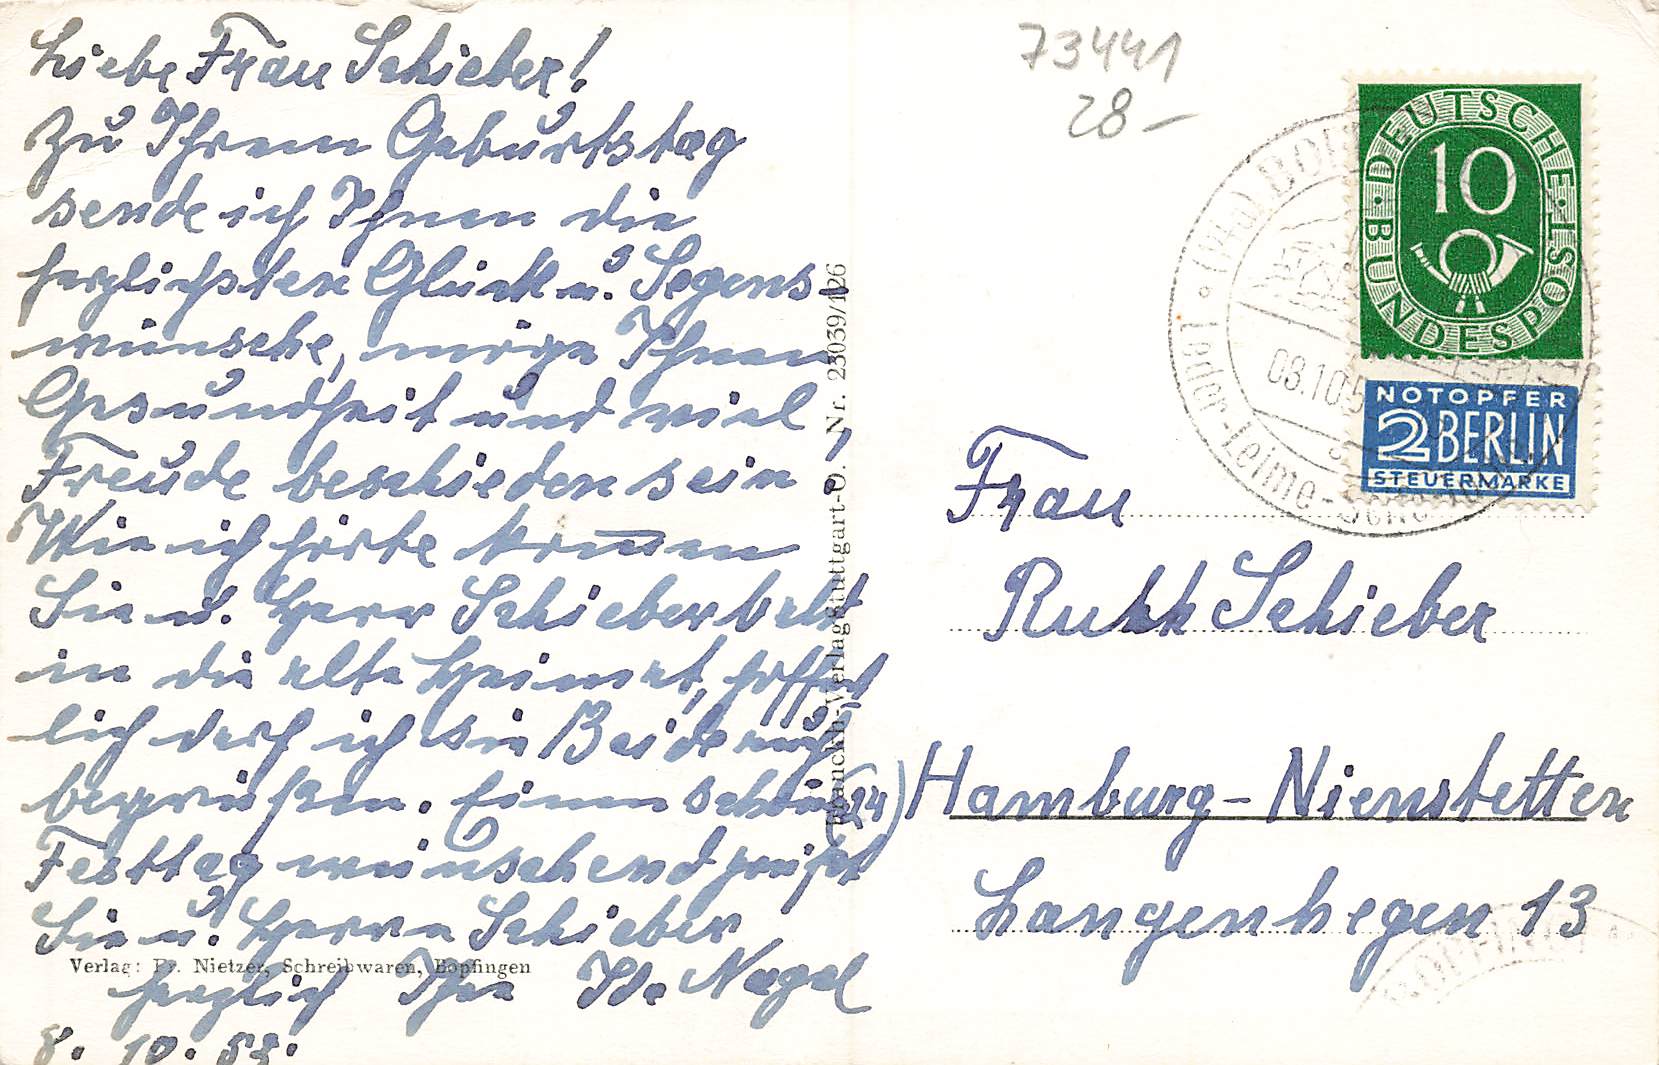 Liebe Frau Schieber!
Zu Ihrem Geburtstag
sende ich Ihnen die
herzlichsten Glück u. Segens-
wünsche, möge Ihnen
Gesundheit und viel
Freude beschieden sein
Wie ich hörte kommen
Sie u. Herr Schieber bald
in die alte Heimat, hoffent
lich darf ich Sie Beide auch
begrüßen. Einen schönen
Festtag wünschend grüßt
Sie u. Herrn Schieber
herzlich Ihre Ida Nagel
8. 10. 53.
Verlag: Fr. Nietzer, Schreibwaren, Bopfingen
Franckh-Verlag Stuttgart-O. Nr. 23039/126
73441
28-
DEUTSCHE BUNDESPOST
10
NOTOPFER
2 BERLIN
STEUERMARKE
08.10.5
Leder-Leime-
Frau
Ruth Schieber
(24) Hamburg-Nienstetten
Langenhegen 13